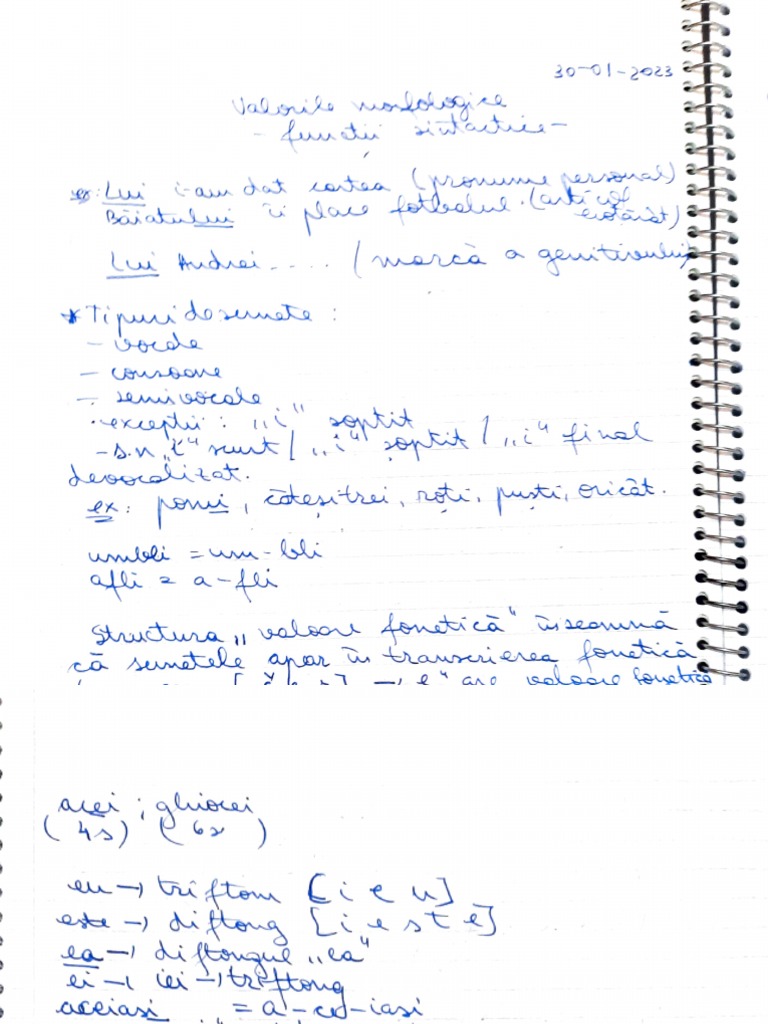 30-01-2023
Valorile morfologice
- funcții sintactice -
ex: Lui i-am dat cartea (pronume personal)
Băiatului îi place fotbalul. (articol
hotărât)
Lui Andrei..... (marcă a genitivului)
* Tipuri de sunete :
- vocale
- consoane
- semivocale
• excepții : „i" șoptit
- s.n „i" scurt / „i" șoptit / „i" final
devocalizat.
ex: pomi, câteșitrei, roți, puști, oricât.
umbli = um-bli
afli = a-fli
Structura „valoare fonetică" înseamnă
că sunetele apar în transcrierea fonetică
→ „e" are valoare fonetică
acei ; ghiocei
(4s) (6s )
eu → triftong [i e u]
este → diftong [i e s t e]
ea → diftongul „ea"
ei → iei → triftong
aceiasi = a-ce-iasi